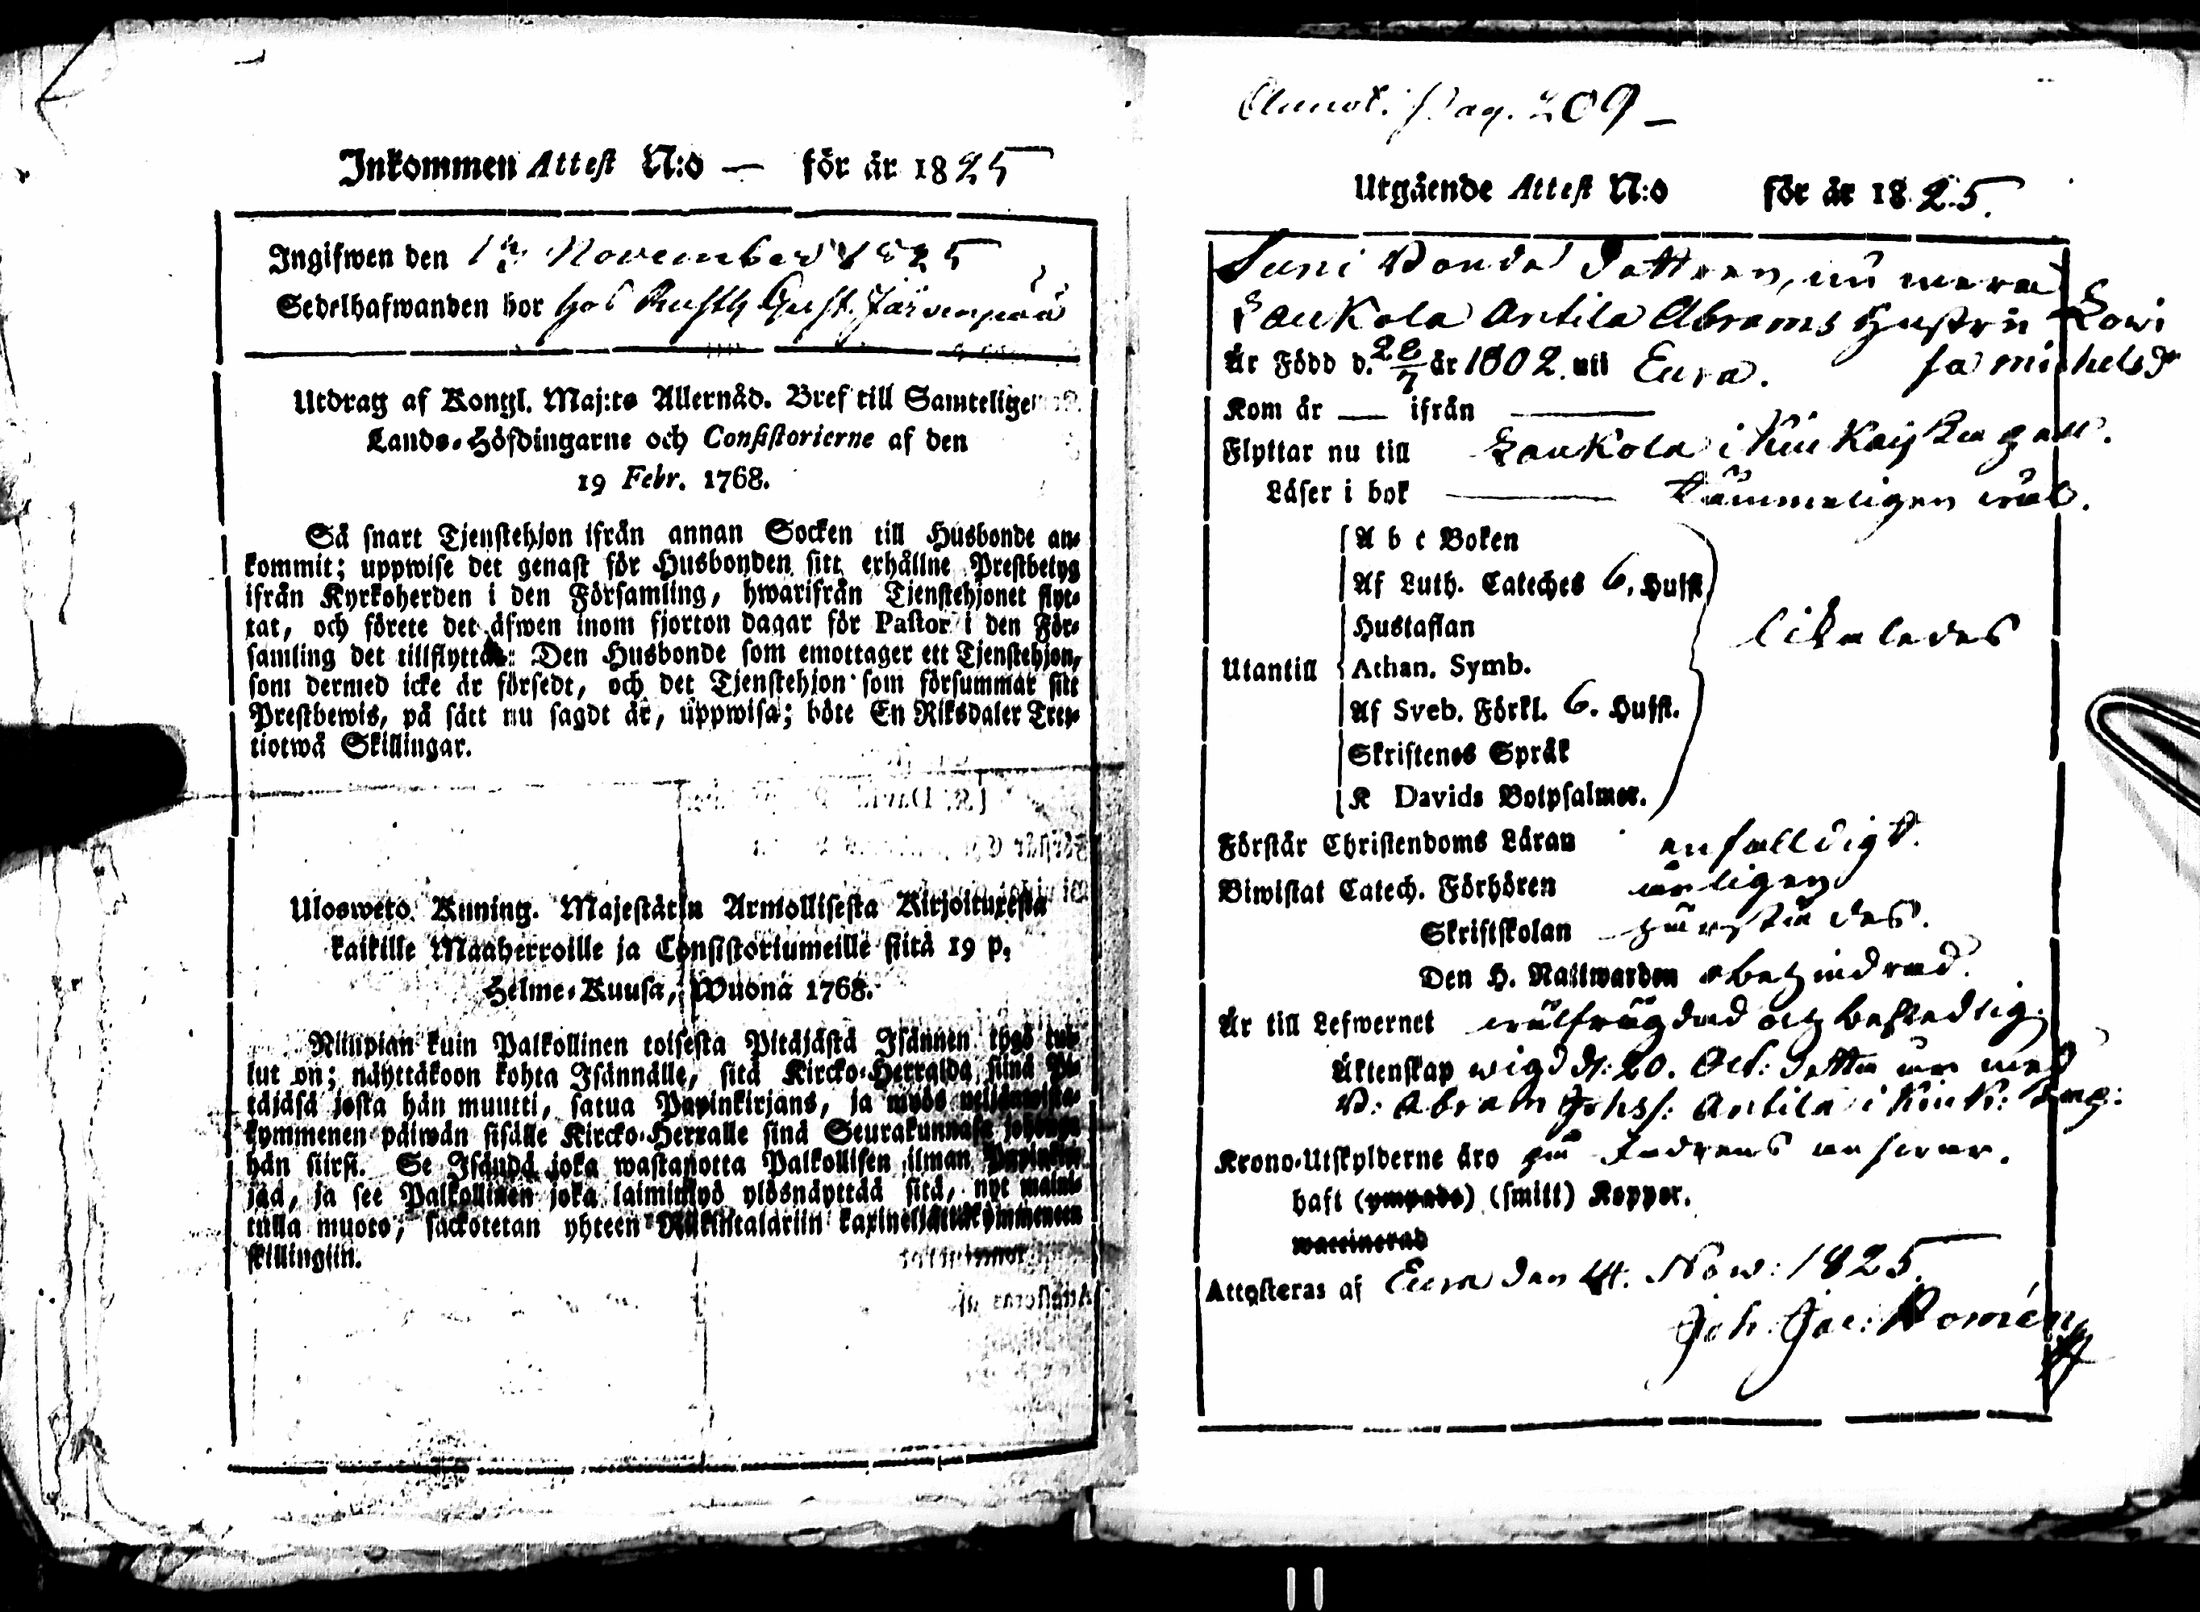 Inkommen Attest N:o — för år 1825
Ingifwen den November 1825
Sedelhafwanden bor hos Gust. Järvenpää
Utdrag af Kongl. Maj:ts Allernåd. Bref till Samtelige
Lands-Höfdingarne och Consistorierne af den
19 Febr. 1768.
Så snart Tjenstehjon ifrån annan Socken till Husbonde an-
kommit; uppwise det genast för Husbonden sitt erhållne Prestbetyg
ifrån Kyrkoherden i den Församling, hwarifrån Tjenstehjonet flyt-
tat, och förete det äfwen inom fjorton dagar för Pastor i den För-
samling det tillflyttat: Den Husbonde som emottager ett Tjenstehjon,
som dermed icke är försedt, och det Tjenstehjon som försummar sitt
Prestbewis, på sätt nu sagdt är, uppwisa; böte En Riksdaler Tret-
tiotwå Skillingar.
Ulosweto Kuning. Majestätin Armollisesta Kirjoituxesta
kaikille Maaherroille ja Consistoriumeille siitä 19 p.
Helme-Kuusa, Wuona 1768.
Niinpian kuin Palkollinen toisesta Pitäjästä Isännen tygö tul-
lut on; näyttäkoon kohta Isännälle, sitä Kircko-Herralda siinä Pi-
täjäsä josta hän muutti, satua Papinkirjans, ja myös neljäntoista-
kymmenen päiwän sisälle Kircko-Herralle sinä Seurakunnasa johonga
hän siirsi. Se Isändä joka wastanotta Palkollisen ilman Papinkir-
jaa, ja see Palkollinen joka laiminlyö ylösnäyttää sitä, nyt maini-
tulla muoto; sackotetan yhteen Riikintalariin kaxineljättäkymmeneen
skillingiin.
Annot. Pag. 209 —
Utgående Attest N:o för år 1825.
Suni Bonde Dottren, nu mera
Laukola Antila Abrams Hustru Lowi
sa Michelsdr
Är Född d. 28/7 år 1802 uti Eura.
Kom år — ifrån —
Flyttar nu till Laukola i Kiukais Kapell.
Läser i bok — tämmeligen wäl.
Utantill
A b c Boken
Af Luth. Cateches 6. Hufst.
Hustaflan
Athan. Symb.
Af Sveb. Förkl. 6. Hufst.
Skriftenes Språk
K Davids Botpsalmer.
likaledes
Förstår Christendoms Läran enfalldigt.
Biwistat Catech. Förhören årligen
Skriftskolan härstädes.
Den H. Nattwarden obehindrad.
Är till Lefwernet wälfrägdad och beskedlig.
Äktenskap wigd d. 20. Oct: detta år med
B: Abram Johss: Antila i Kiuk: Kap:
Krono-Utskylderne äro på Fadrens answar.
haft (ympade) (smitt) Koppor.
waccinerad
Attesteras af Eura den 14. Now: 1825.
Joh: Jac: Bomén